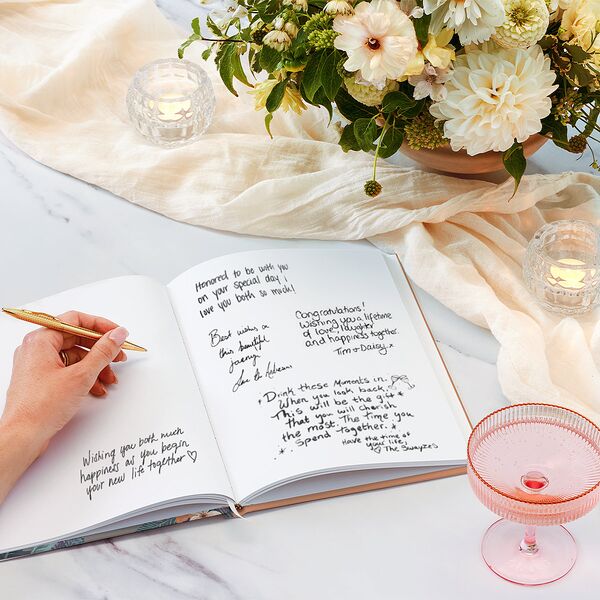 Wishing you both much
happiness as you begin
your new life together ♡
Honored to be with you
on your special day!
love you both so much!
Best wishes on
this beautiful
journey
Congratulations!
Wishing you a lifetime
of love, laughter
and happiness together.
Tim + Daisy x
Drink these Moments in.
When you look back,
This will be the gift
that you will cherish
the most. The time you
Spend together.
Have the time of
your life,
♡ The Swayzes